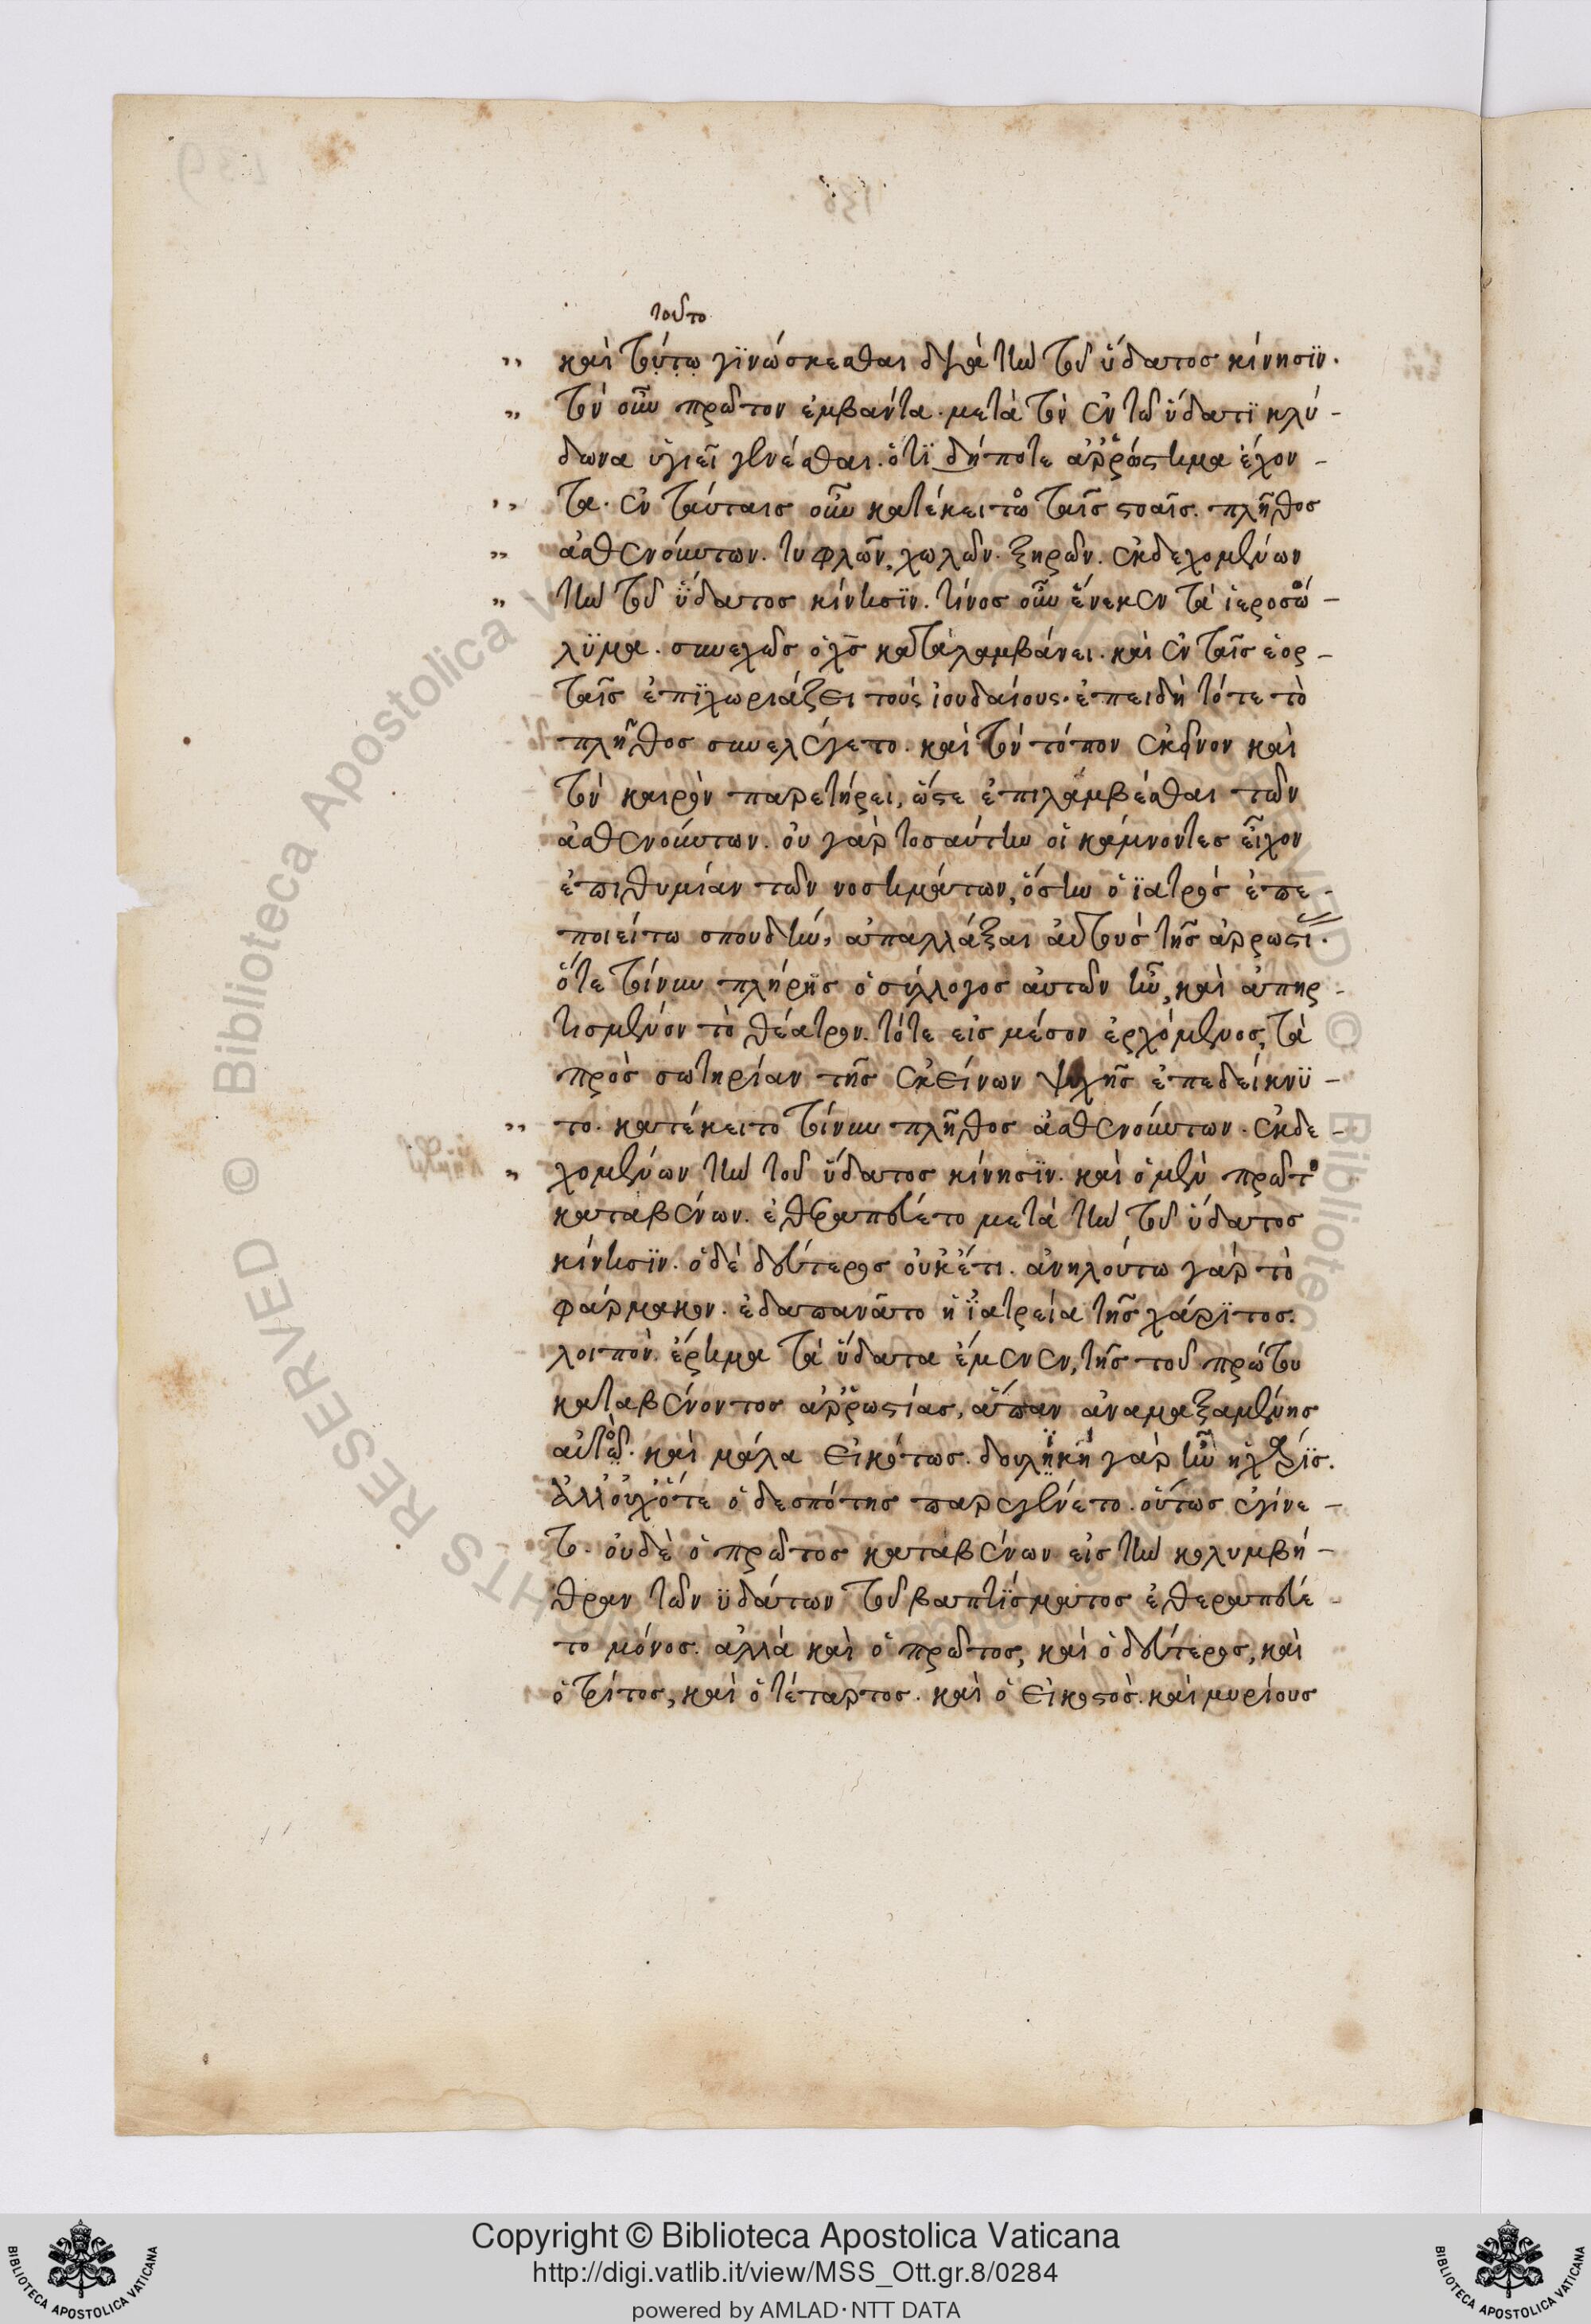 τοῦτο
καὶ τούτω γϊνώσκεσθαι διὰ τὴν τοῦ ὕδατος κίνησϊν.
τὸν οὖν πρῶτον ἐμβάντα. μετὰ τὸν ἐν τῶ ὕδατϊ κλύ-
δωνα ὑγιεῖ γενέσθαι. ὅτϊ δήποτε ἀρρώστημα ἔχον-
τα. ἐν ταύταις οὖν κατέκειτο ταῖς στοαῖς. πλῆθος
ἀσθενούντων. τυφλῶν, χωλῶν. ξηρῶν. ἐκδεχομένων
τὴν τοῦ ὕδατος κίνησϊν. τίνος οὖν ἕνεκεν τὰ ἱεροσό-
λϋμα. συνεχῶς ὁ χς καταλαμβάνει. καὶ ἐν ταῖς ἑορ-
ταῖς ἐπϊχωριάζει τοὺς ἰουδαίους. ἐπειδὴ τότε τὸ
πλῆθος συνελέγετο. καὶ τὸν τόπον ἐκεῖνον καὶ
τὸν καιρὸν παρετήρει, ὥστε ἐπιλαμβέσθαι τῶν
ἀσθενούντων. οὐ γὰρ τοσαύτην οἱ κάμνοντες εἶχον
ἐπιθυμίαν τῶν νοσημάτων, ὅσην ὁ ϊατρὸς ἐπε-
ποιείτω σπουδὴν, ἀπαλλάξαι αὐτοὺς τῆς ἀρωστί.
ὅτε τοίνυν πλήρης ὁ σύλλογος αὐτῶν ἦν, καὶ ἀπηρ-
τισμένον τὸ θέατρον. τότε εἰς μέσον ἐρχόμενος, τὰ
πρὸς σωτηρίαν τῆς ἐκείνων ψυχῆς ἐπεδείκνϋ-
το. κατέκειτο τοίνυν πλῆθος ἀσθενούντων. ἐκδε-
χομένων τὴν τοῦ ὕδατος κίνησϊν. καὶ ὁ μὲν πρῶτο
καταβαίνων. ἐθεραπεύετο μετὰ τὴν τοῦ ὕδατος
κίνησϊν. ὁ δὲ δεύτερος οὐκέτι. ἀνηλούτω γὰρ τὸ
φάρμακον. ἐδαπανᾶτο ἡ ϊατρεία τῆς χάρϊτος.
λοιπὸν. ἔρημα τὰ ὕδατα ἔμενεν, τῆς τοῦ πρώτου
καταβαίνοντος ἀρρωστίας, ἅπαν ἀναμαξαμένης
αὐτό. καὶ μάλα εἰκότως. δουλϊκὴ γὰρ ἦν ἡ χάρϊς.
ἀλλ' οὐχ ὅτε ὁ δεσπότης παρεγένετο. οὕτως ἐγίνε-
το. οὐδὲ ὁ πρῶτος καταβαίνων εἰς τὴν κολυμβή-
θραν τῶν ϋδάτων τοῦ βαπτϊσματος ἐθεραπεύε-
το μόνος. ἀλλὰ καὶ ὁ πρῶτος, καὶ ὁ δεύτερος, καὶ
ὁ τρίτος, καὶ ὁ τέταρτος. καὶ ὁ εἰκοστὸς. καὶ μυρίους
Copyright © Biblioteca Apostolica Vaticana
http://digi.vatlib.it/view/MSS_Ott.gr.8/0284
powered by AMLAD·NTT DATA